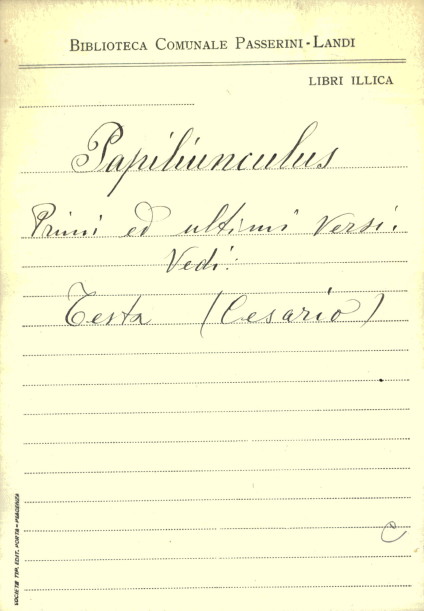 BIBLIOTECA COMUNALE PASSERINI-LANDI
LIBRI ILLICA
Papiliunculus
Primi ed ultimi versi.
Vedi:
Testa (Cesario)
C
SOCIETÀ TIP. EDIT. PORTA - PIACENZA